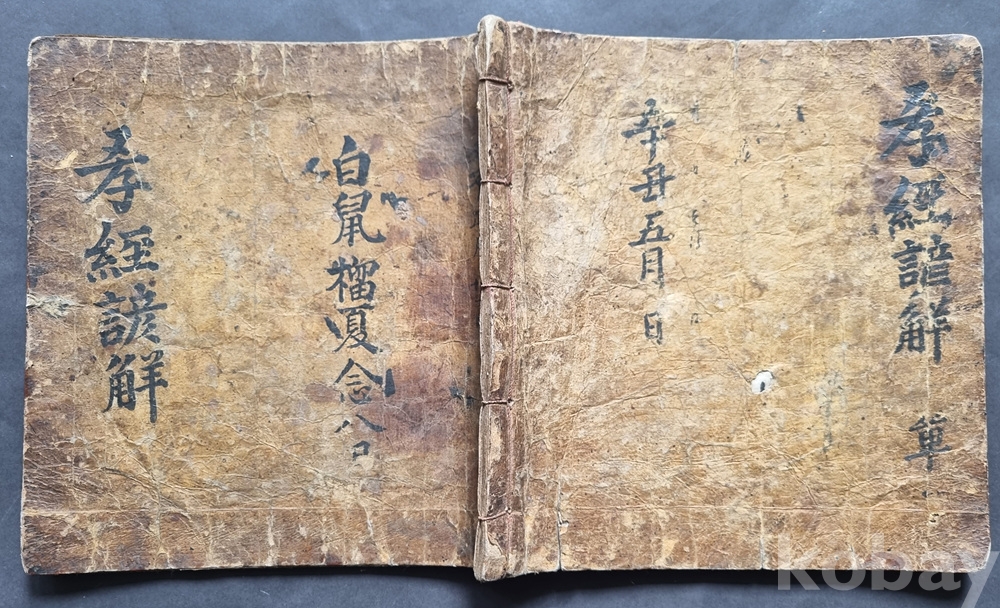 孝經諺觧 單
辛丑五月 日
白鼠榴夏念八日
孝經諺觧
kobay